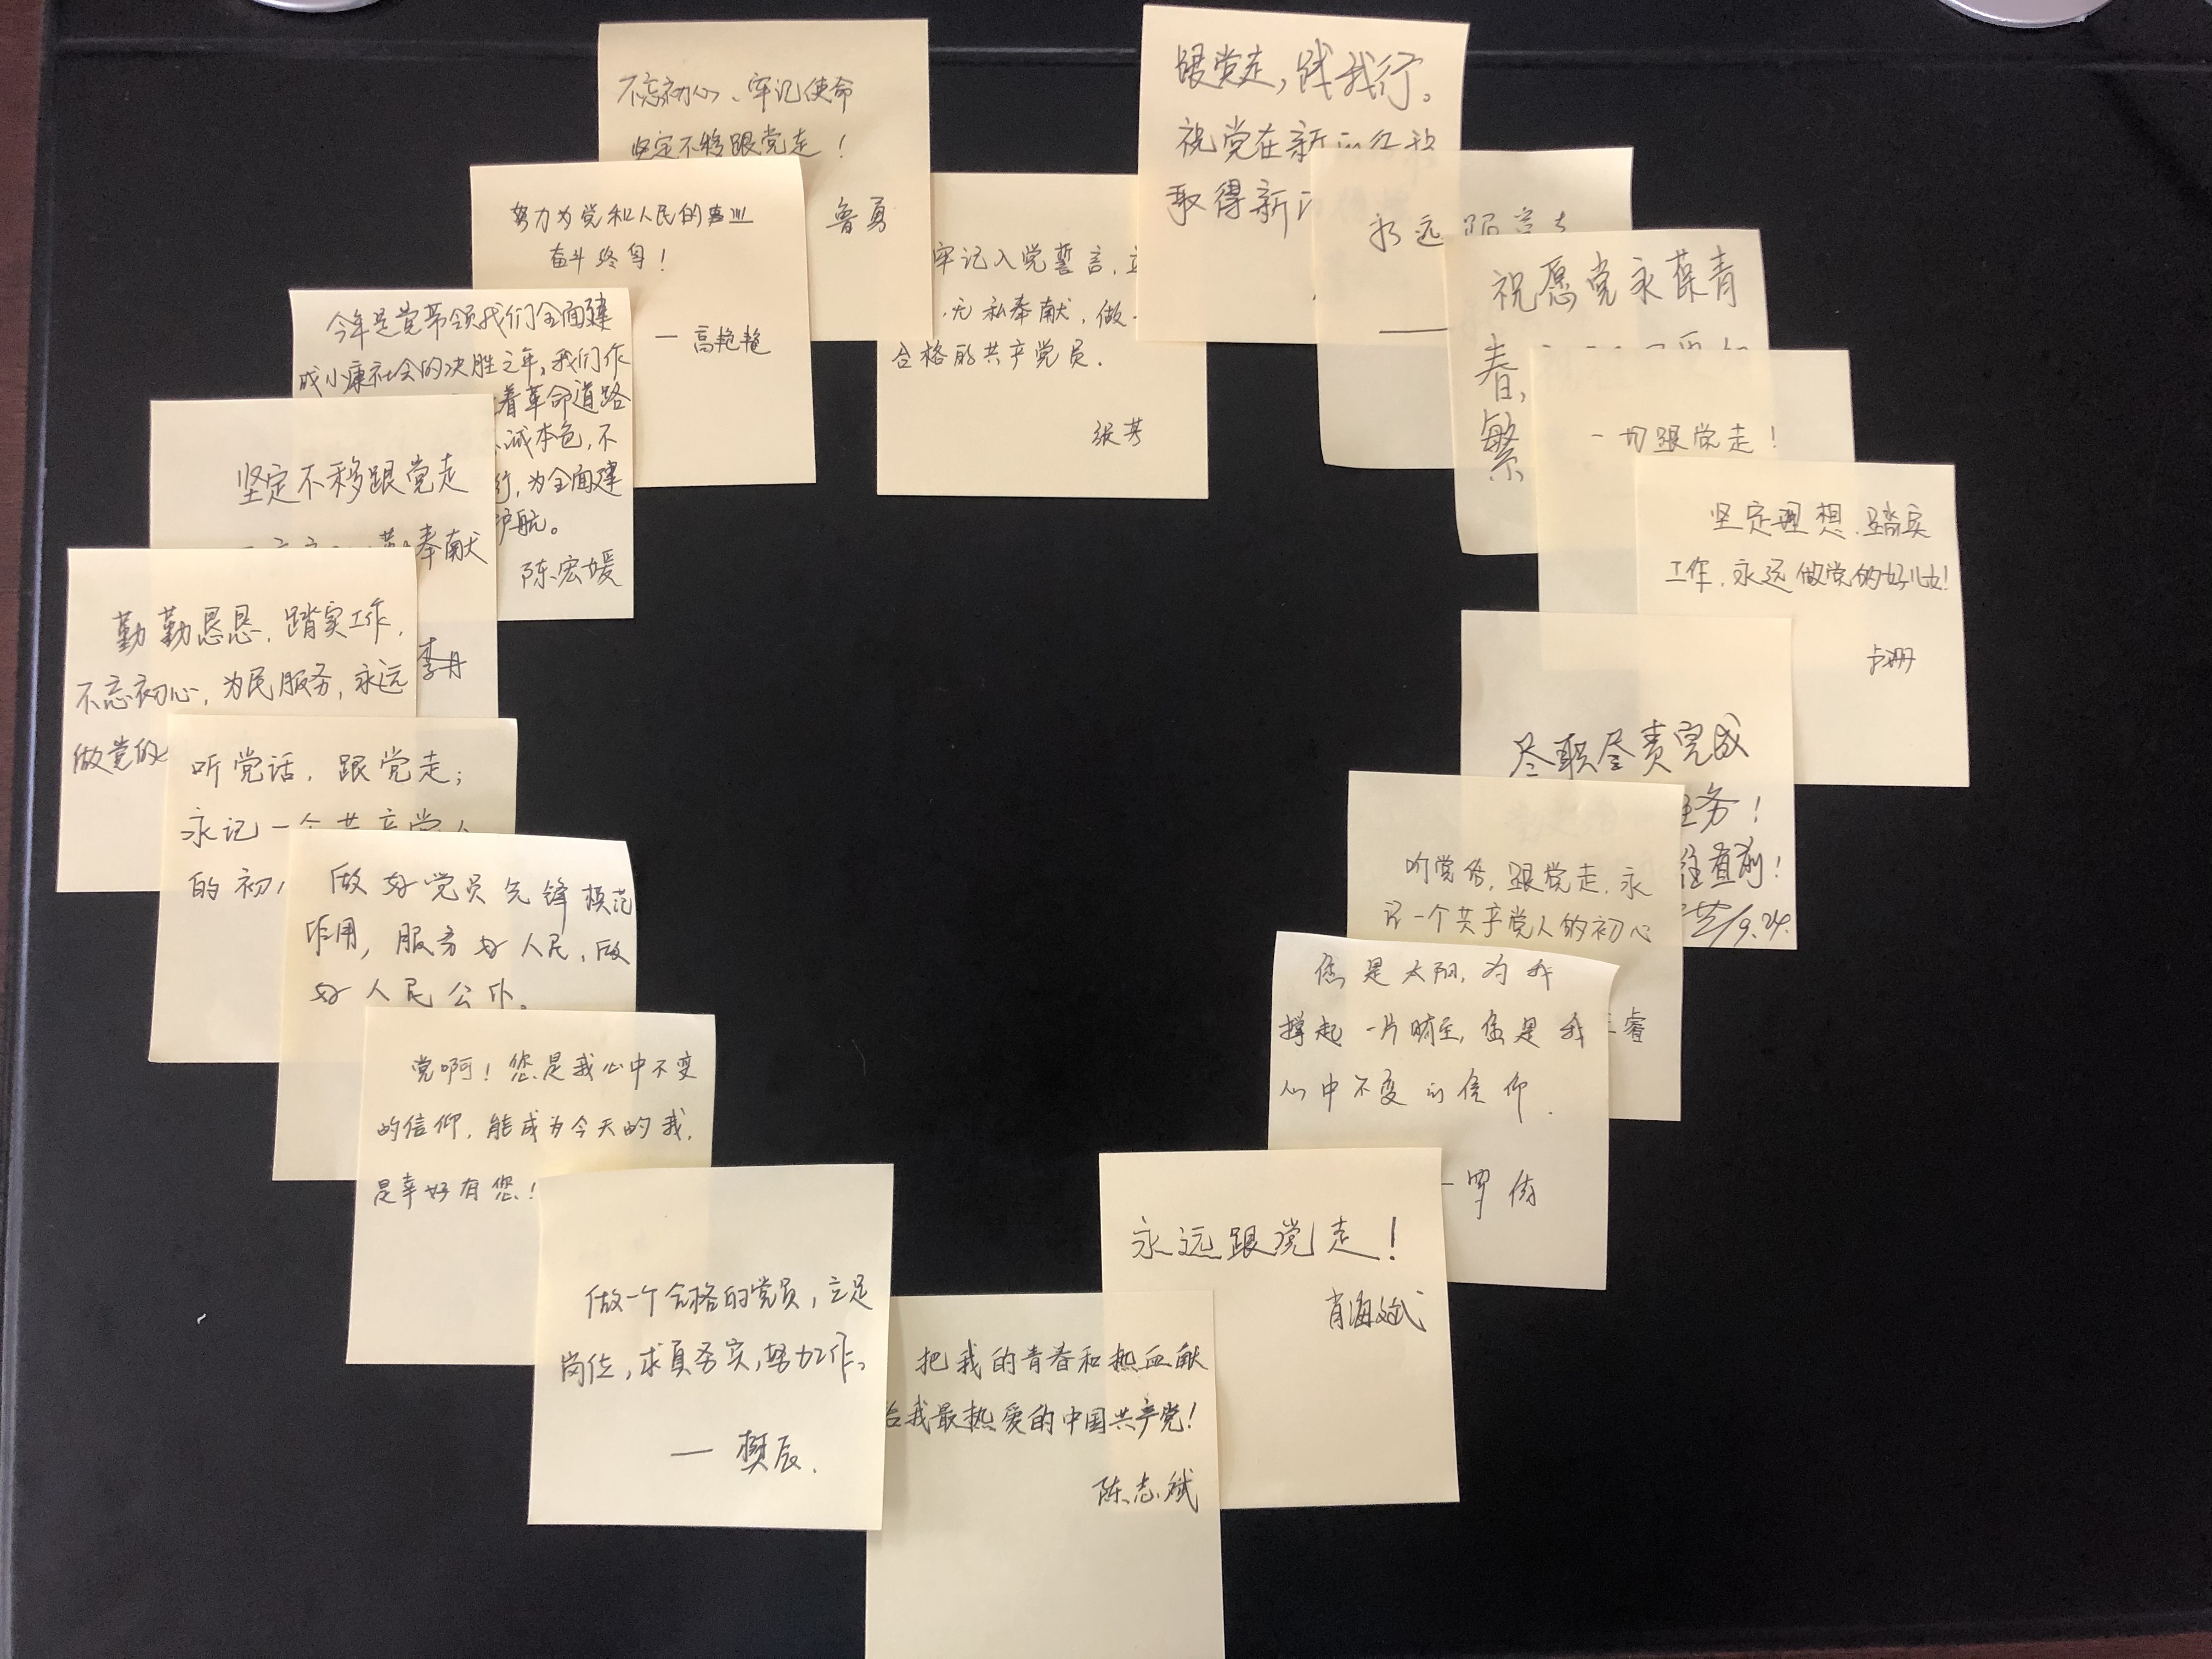 不忘初心、牢记使命
坚定不移跟党走！
鲁勇
努力为党和人民的事业
奋斗终身！
— 高艳艳
今年是党带领我们全面建
成小康社会的决胜之年，我们作
着革命道路
诚本色，不
行，为全面建
护航。
陈宏媛
坚定不移跟党走
奉献
李丹
勤勤恳恳，踏实工作，
不忘初心，为民服务，永远
做党的
听党话，跟党走；
永记一个共产党人
的初
做好党员先锋模范
作用，服务好人民，做
好人民公仆。
党啊！您是我心中不变
的信仰，能成为今天的我，
是幸好有您！
做一个合格的党员，立足
岗位，求真务实，努力工作。
— 樊辰.
把我的青春和热血献
给我最热爱的中国共产党！
陈志斌
永远跟党走！
肖海斌
您是太阳，为我
撑起一片晴空，您是我
心中不变的信仰.
听党话，跟党走，永
记一个共产党人的初心
睿
尽职尽责完成
任务！
往直前！
9.24.
坚定理想，踏实
工作，永远做党的好儿女！
卢珊
一切跟党走！
祝愿党永葆青
春，
繁
永远跟党走
跟党走，践我行。
祝党在新的
取得新
牢记入党誓言，
，无私奉献，做
合格的共产党员.
张芳